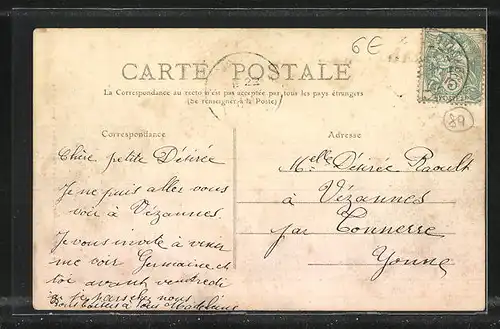 6E
CARTE POSTALE
La Correspondance au recto n'est pas acceptée par tous les pays étrangers
(Se renseigner à la Poste)
89
Correspondance
Chère petite Désirée
Je ne puis aller vous
voir à Vézannes.
Je vous invite à venir
me voir Germaine et
toi avant vendredi
nous
à tous Madeleine
Adresse
Melle Désirée Raoult
à Vézannes
par Tonnerre
Yonne